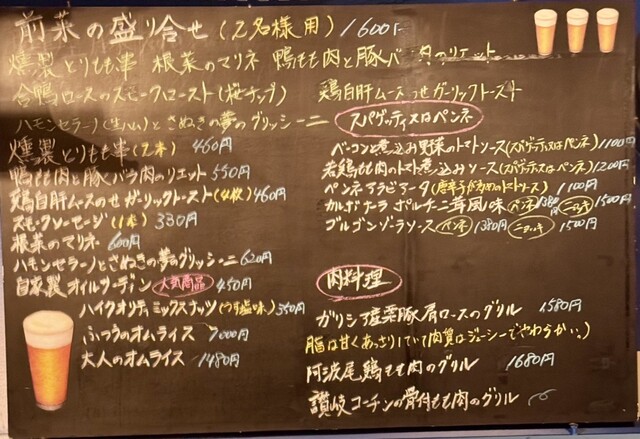 前菜の盛り合せ(2名様用) 1600円
燻製とりもも串 根菜のマリネ 鴨もも肉と豚バラ肉のリエット
合鴨ロースのスモークロースト(桜チップ) 鶏白肝ムースのせガーリックトースト
ハモンセラーノ(生ハム)とさぬきの夢のグリッシーニ
燻製とりもも串(2本) 460円
鴨もも肉と豚バラ肉のリエット 550円
鶏白肝ムースのせガーリックトースト(4枚) 460円
スモークソーセージ(1本) 330円
根菜のマリネ 600円
ハモンセラーノとさぬきの夢のグリッシーニ 620円
自家製オイルサーディン 人気商品 450円
ハイクオリティミックスナッツ(うす塩味) 350円
ふつうのオムライス 1000円
大人のオムライス 1480円
スパゲッティ又はペンネ
ベーコンと煮込み野菜のトマトソース(スパゲッティ又はペンネ) 1100円
若鶏もも肉のトマト煮込みソース(スパゲッティ又はペンネ) 1200円
ペンネアラビアータ(唐辛子がきいたトマトソース) 1100円
カルボナーラ ポルチーニ茸風味 ペンネ 1380円 ニョッキ 1500円
ゴルゴンゾーラソース ペンネ 1380円 ニョッキ 1500円
肉料理
ガリシア産栗豚肩ロースのグリル 1580円
脂は甘くあっさりしていて肉質はジューシーでやわらかい。)
阿波尾鶏もも肉のグリル 1680円
讃岐コーチンの骨付もも肉のグリル